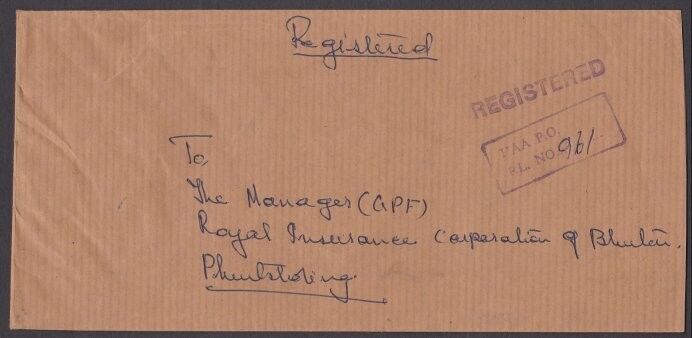 Registered
REGISTERED
HAA P.O.
R.L. NO. 961
To,
The Manager (GPF)
Royal Insurance Corporation of Bhutan.
Phuntsholing.